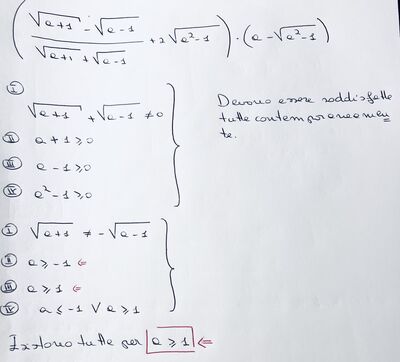 ( (√a+1 - √a-1) / (√a+1 + √a-1) + 2√a²-1 ) · (a - √a²-1)
Ⓘ
√a+1 + √a-1 ≠0
Ⅱ a+1 ≥0
Ⅲ a-1 ≥0
Ⅳ a²-1 ≥0
Devono essere soddisfatte
tutte contemporaneamen
te.
Ⓘ √a+1 ≠ -√a-1
Ⅱ a ≥ -1 ⇐
Ⅲ a ≥ 1 ⇐
Ⅳ a ≤ -1 ∨ a ≥ 1
Esistono tutte per a ≥ 1 ⇐